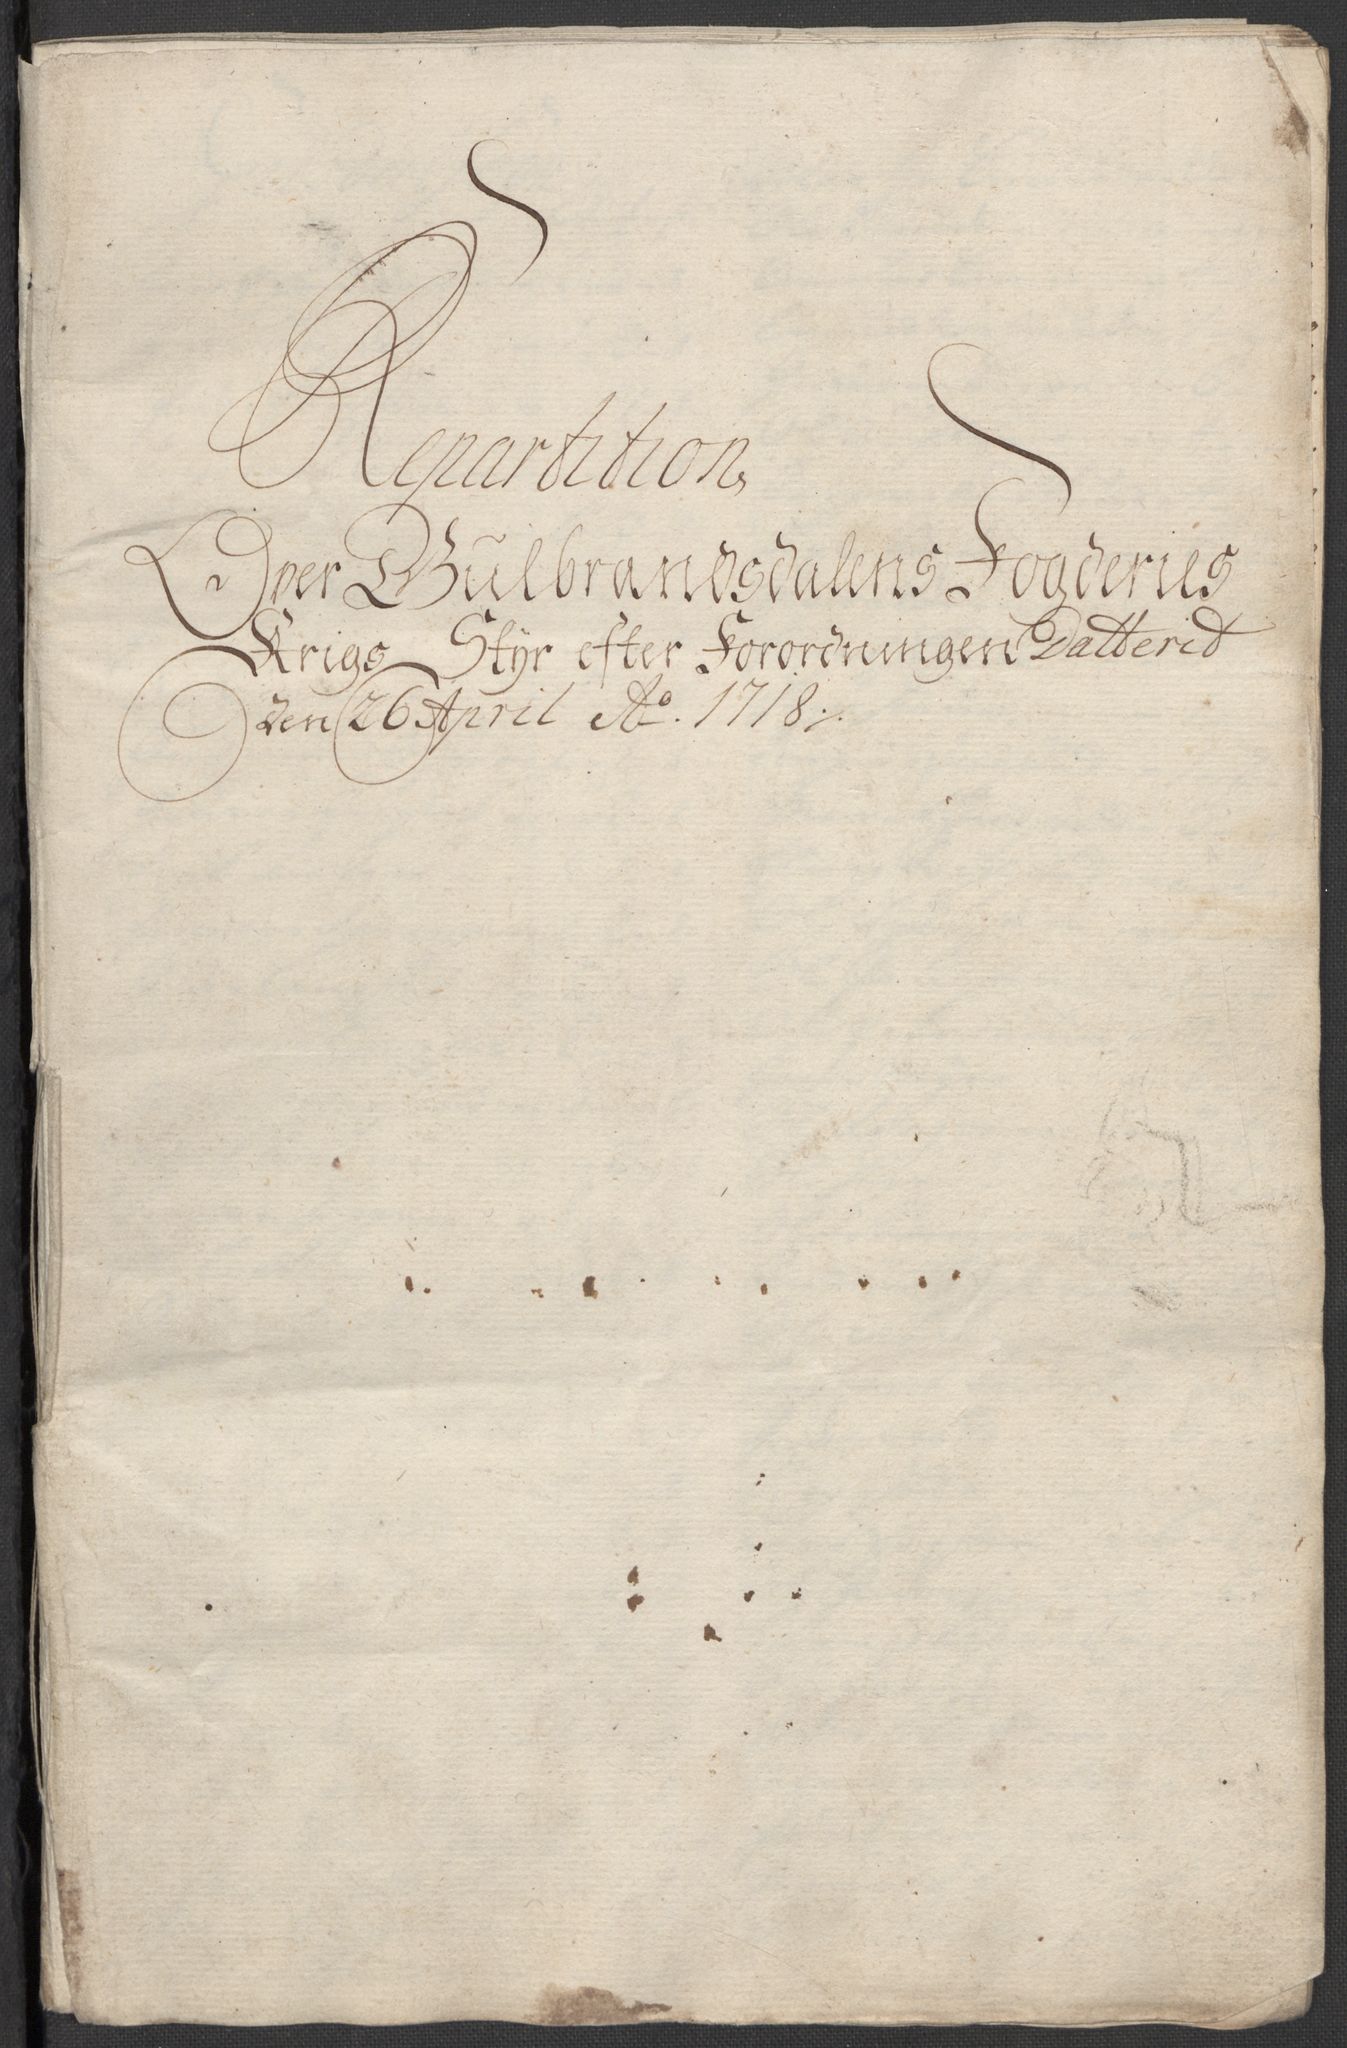 Repartition
Over Gŭlbrandsdalens Fogderies
Krigs Styr efter Forordningen Datterit
den 26 April Ao. 1718.